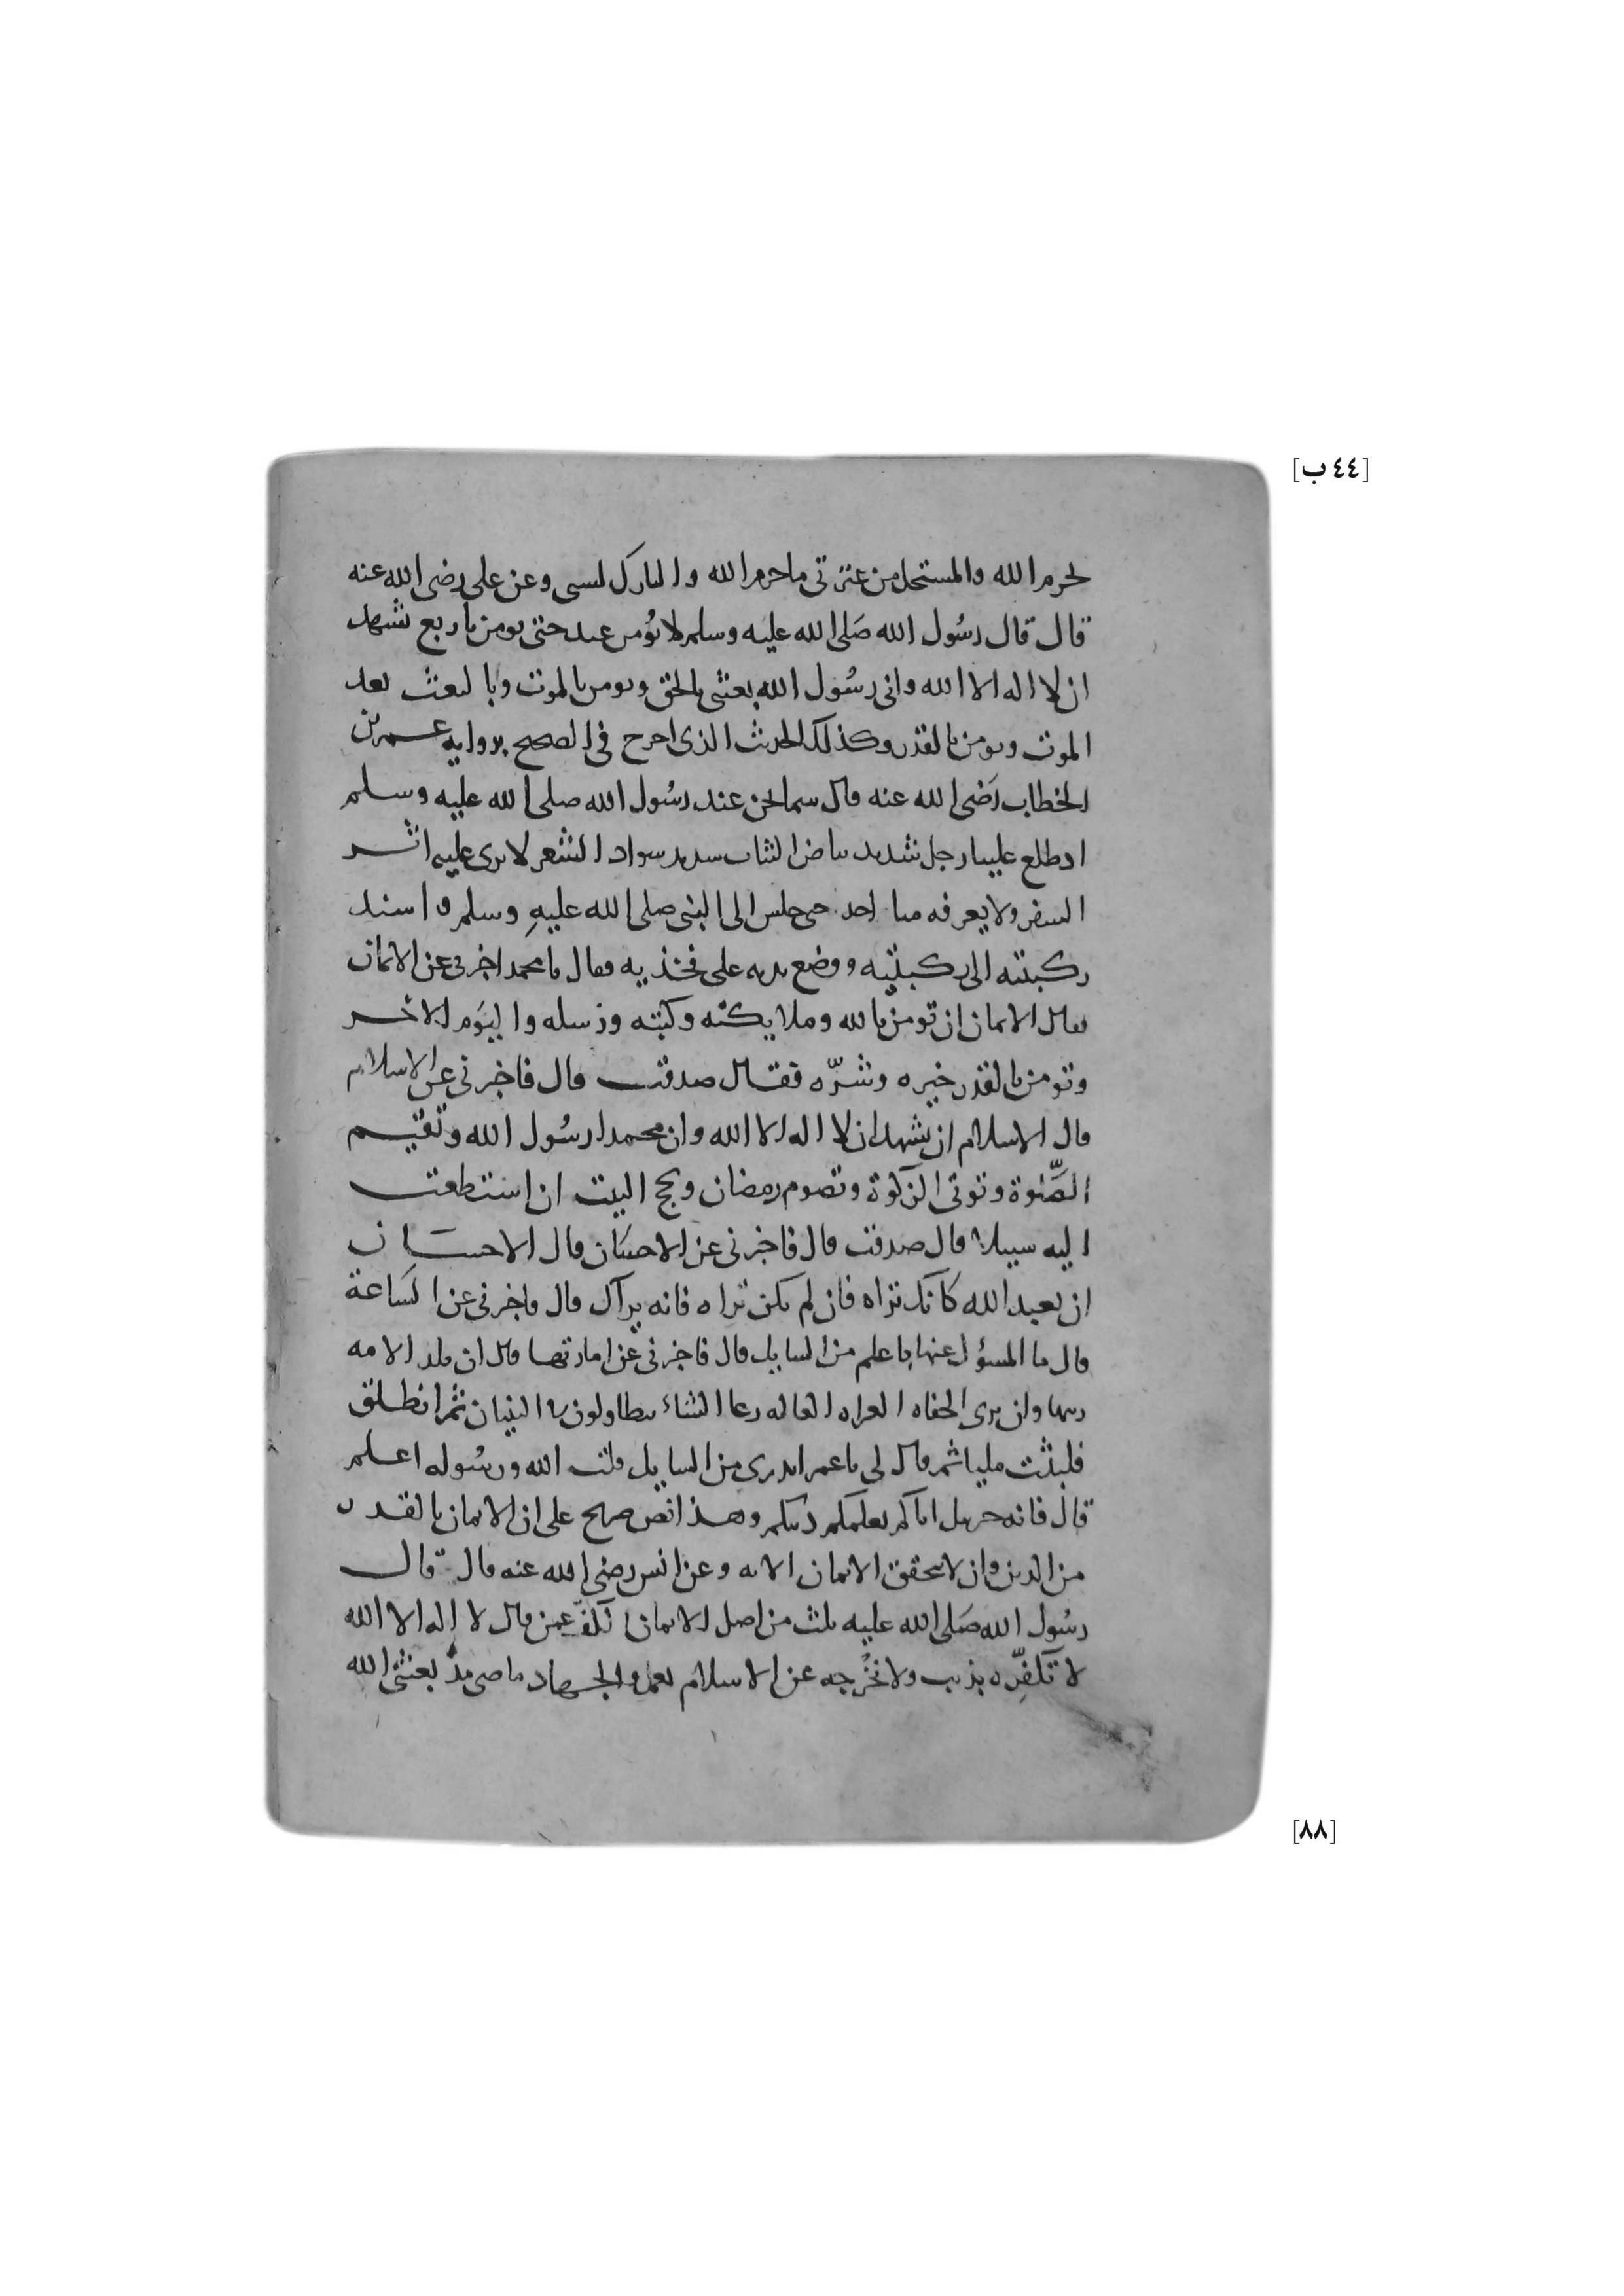 [٤٤ ب]
لحرم الله والمستحل من عترتي ما حرم الله والتارك لسنتي وعن علي رضي الله عنه
قال قال رسول الله صلى الله عليه وسلم لا يؤمن عبد حتى يومن باربع يشهد
ان لا اله الا الله واني رسول الله بعثني بالحق ويومن بالموت وبالبعث بعد
الموت ويومن بالقدر وكذلك الحديث الذي اخرج في الصحيح برواية عمر بن
الخطاب رضي الله عنه قال بينما نحن عند رسول الله صلى الله عليه وسلم
اد طلع علينا رجل شديد بياض الثياب شديد سواد الشعر لا يرى عليه اثر
السفر ولا يعرفه منا احد حتى جلس الى النبي صلى الله عليه وسلم واسند
ركبتيه الى ركبتيه ووضع يديه على فخذيه وقال يا محمد اخبرني عن الايمان
فقال الايمان ان تومن بالله وملايكته وكتبه ورسله واليوم الاخر
وتومن بالقدر خيره وشره فقال صدقت قال فاخبرني عن الاسلام
قال الاسلام ان تشهد ان لا اله الا الله وان محمدا رسول الله وتقيم
الصلوة وتوتي الزكوة وتصوم رمضان وتحج البيت ان استطعت
اليه سبيلا قال صدقت قال فاخبرني عن الاحسان قال الاحسان
ان تعبد الله كانك تراه فان لم تكن تراه فانه يراك قال فاخبرني عن الساعة
قال ما المسؤل عنها باعلم من السايل قال فاخبرني عن امارتها قال ان تلد الامه
ربتها وان ترى الحفاه العراه العاله رعا الشاء يتطاولون في البنيان ثم انطلق
فلبثت مليا ثم قال لي يا عمر اتدري من السايل قلت الله ورسوله اعلم
قال فانه جبريل اتاكم يعلمكم دينكم وهذا نص صريح على ان الايمان بالقدر
من الدين وان لا يتحقق الايمان الا به وعن انس رضي الله عنه قال قال
رسول الله صلى الله عليه ثلث من اصل الايمان الكف عمن قال لا اله الا الله
لا تكفره بذنب ولا تخرجه عن الاسلام بعمل والجهاد ماضي مذ بعثني الله
[٨٨]